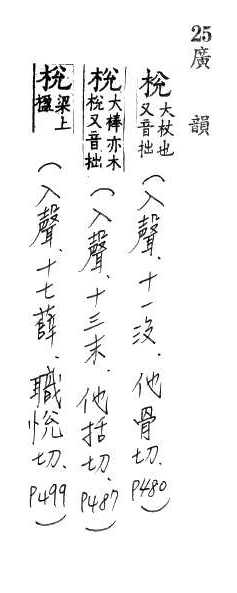 25廣韻
梲大杖也又音拙(入聲、十一沒、他骨切、P480)
梲大棒亦木梲又音拙(入聲、十三末、他括切、P487)
梲梁上楹(入聲、十七薛、職悅切、P499)